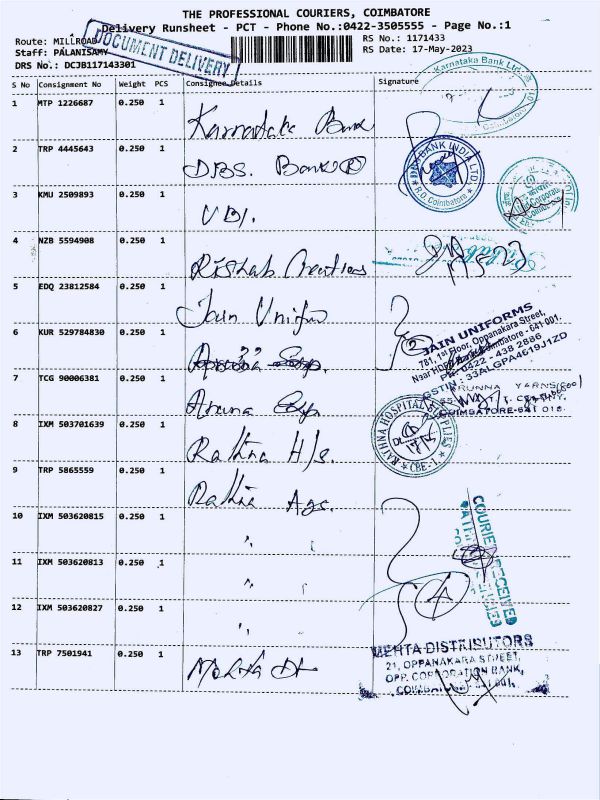 THE PROFESSIONAL COURIERS, COIMBATORE
Delivery Runsheet - PCT - Phone No.:0422-3505555 - Page No.:1
Route: MILLROAD
RS No.: 1171433
Staff: PALANISAMY
RS Date: 17-May-2023
DRS No.: DCJB117143301
DOCUMENT DELIVERY
S No Consignment No Weight PCS Consignee Details Signature
1 MTP 1226687 0.250 1 Karnataka Bank
Karnataka Bank Ltd.
Coimbatore
2 TRP 4445643 0.250 1 DBS. Bank
BANK INDIA LTD
R.O. Coimbatore
3 KMU 2509893 0.250 1 UBI.
4 NZB 5594908 0.250 1 Rishab Creations
17/5/23
5 EDQ 23812584 0.250 1 Jain Unifm
2
JAIN UNIFORMS
781, 1st Floor, Oppanakara Street,
Near HDFC Bank, Coimbatore - 641 001.
PH: 0422 - 438 2886
GSTIN : 33ALGPA4619J1ZD
6 KUR 529784830 0.250 1
7 TCG 90006381 0.250 1 Aruna
ARUNNA YARNS
COIMBATORE-641 018.
8 IXM 503701639 0.250 1 Rathna H/s.
RATHNA HOSPITAL SUPPLIES
CBE-1.
9 TRP 5865559 0.250 1 Rathna Ags.
10 IXM 503620815 0.250 1 "
11 IXM 503620813 0.250 1 "
12 IXM 503620827 0.250 1 "
4
COURIER RECEIVED
13 TRP 7501941 0.250 1 Mehta Dt
MEHTA DISTRIBUTORS
21, OPPANAKARA STREET,
OPP. CORPORATION BANK,